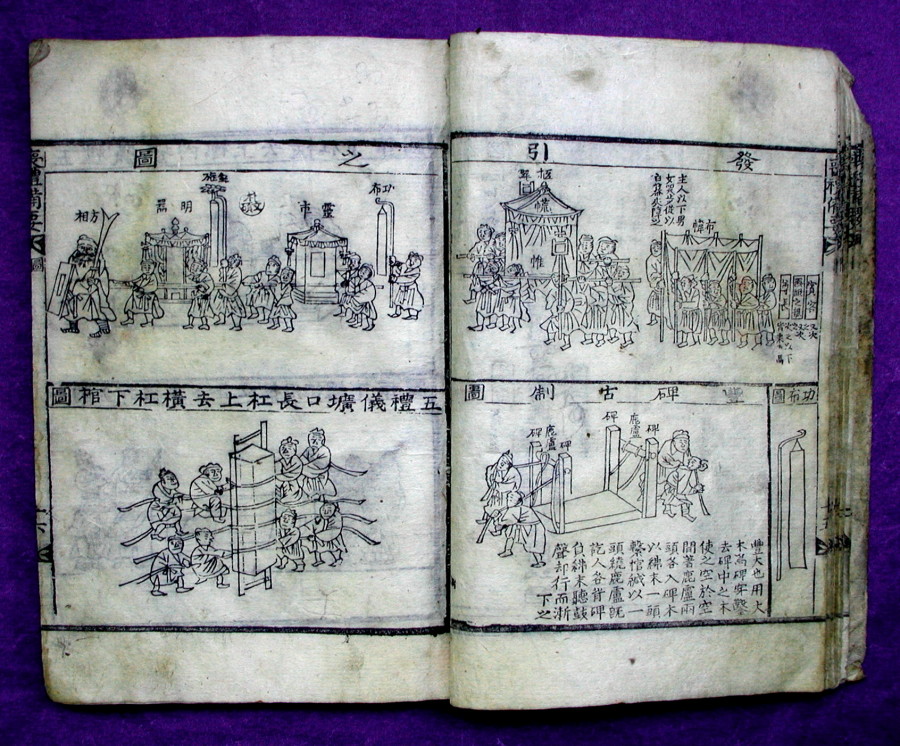 發引
主人以下男
女哭步從以
白幕夾障之
布幃
帷
功布圖
碑古制圖
碑
鹿盧
碑
碑
鹿盧
碑
豊大也用大
木為碑穿鑿
去碑中之木
使之空於空
間著鹿盧兩
頭各入碑木
以綍末一頭
繫棺緘以一
頭繞鹿盧旣
訖人各背碑
負綍末聽鼓
聲却行而漸
下之
之圖
功布
靈車
銘旌
明器
方相
五禮儀壙口長杠上去橫杠下棺圖